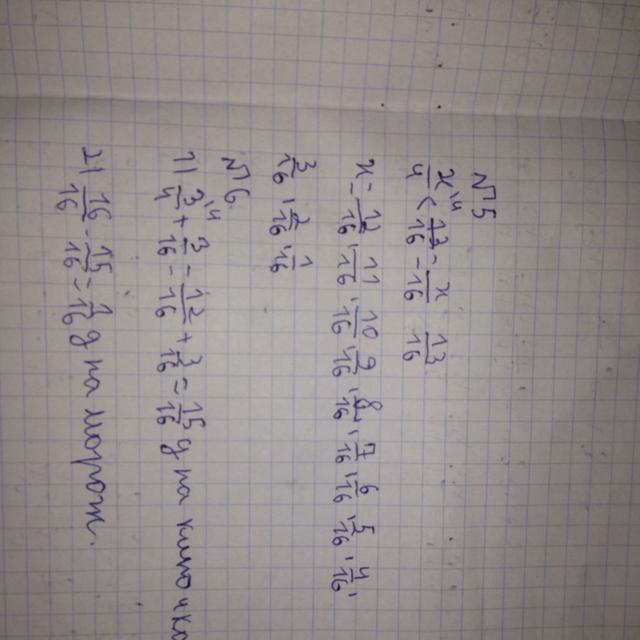 №5
x/4 \4 < 13/16 = x/16 13/16
x = 12/16, 11/16, 10/16, 9/16, 8/16, 7/16, 6/16, 5/16, 4/16,
3/16, 2/16, 1/16
№6
1) 3/4 \4 + 3/16 = 12/16 + 3/16 = 15/16 д на
2) 16/16 - 15/16 = 1/16 д на